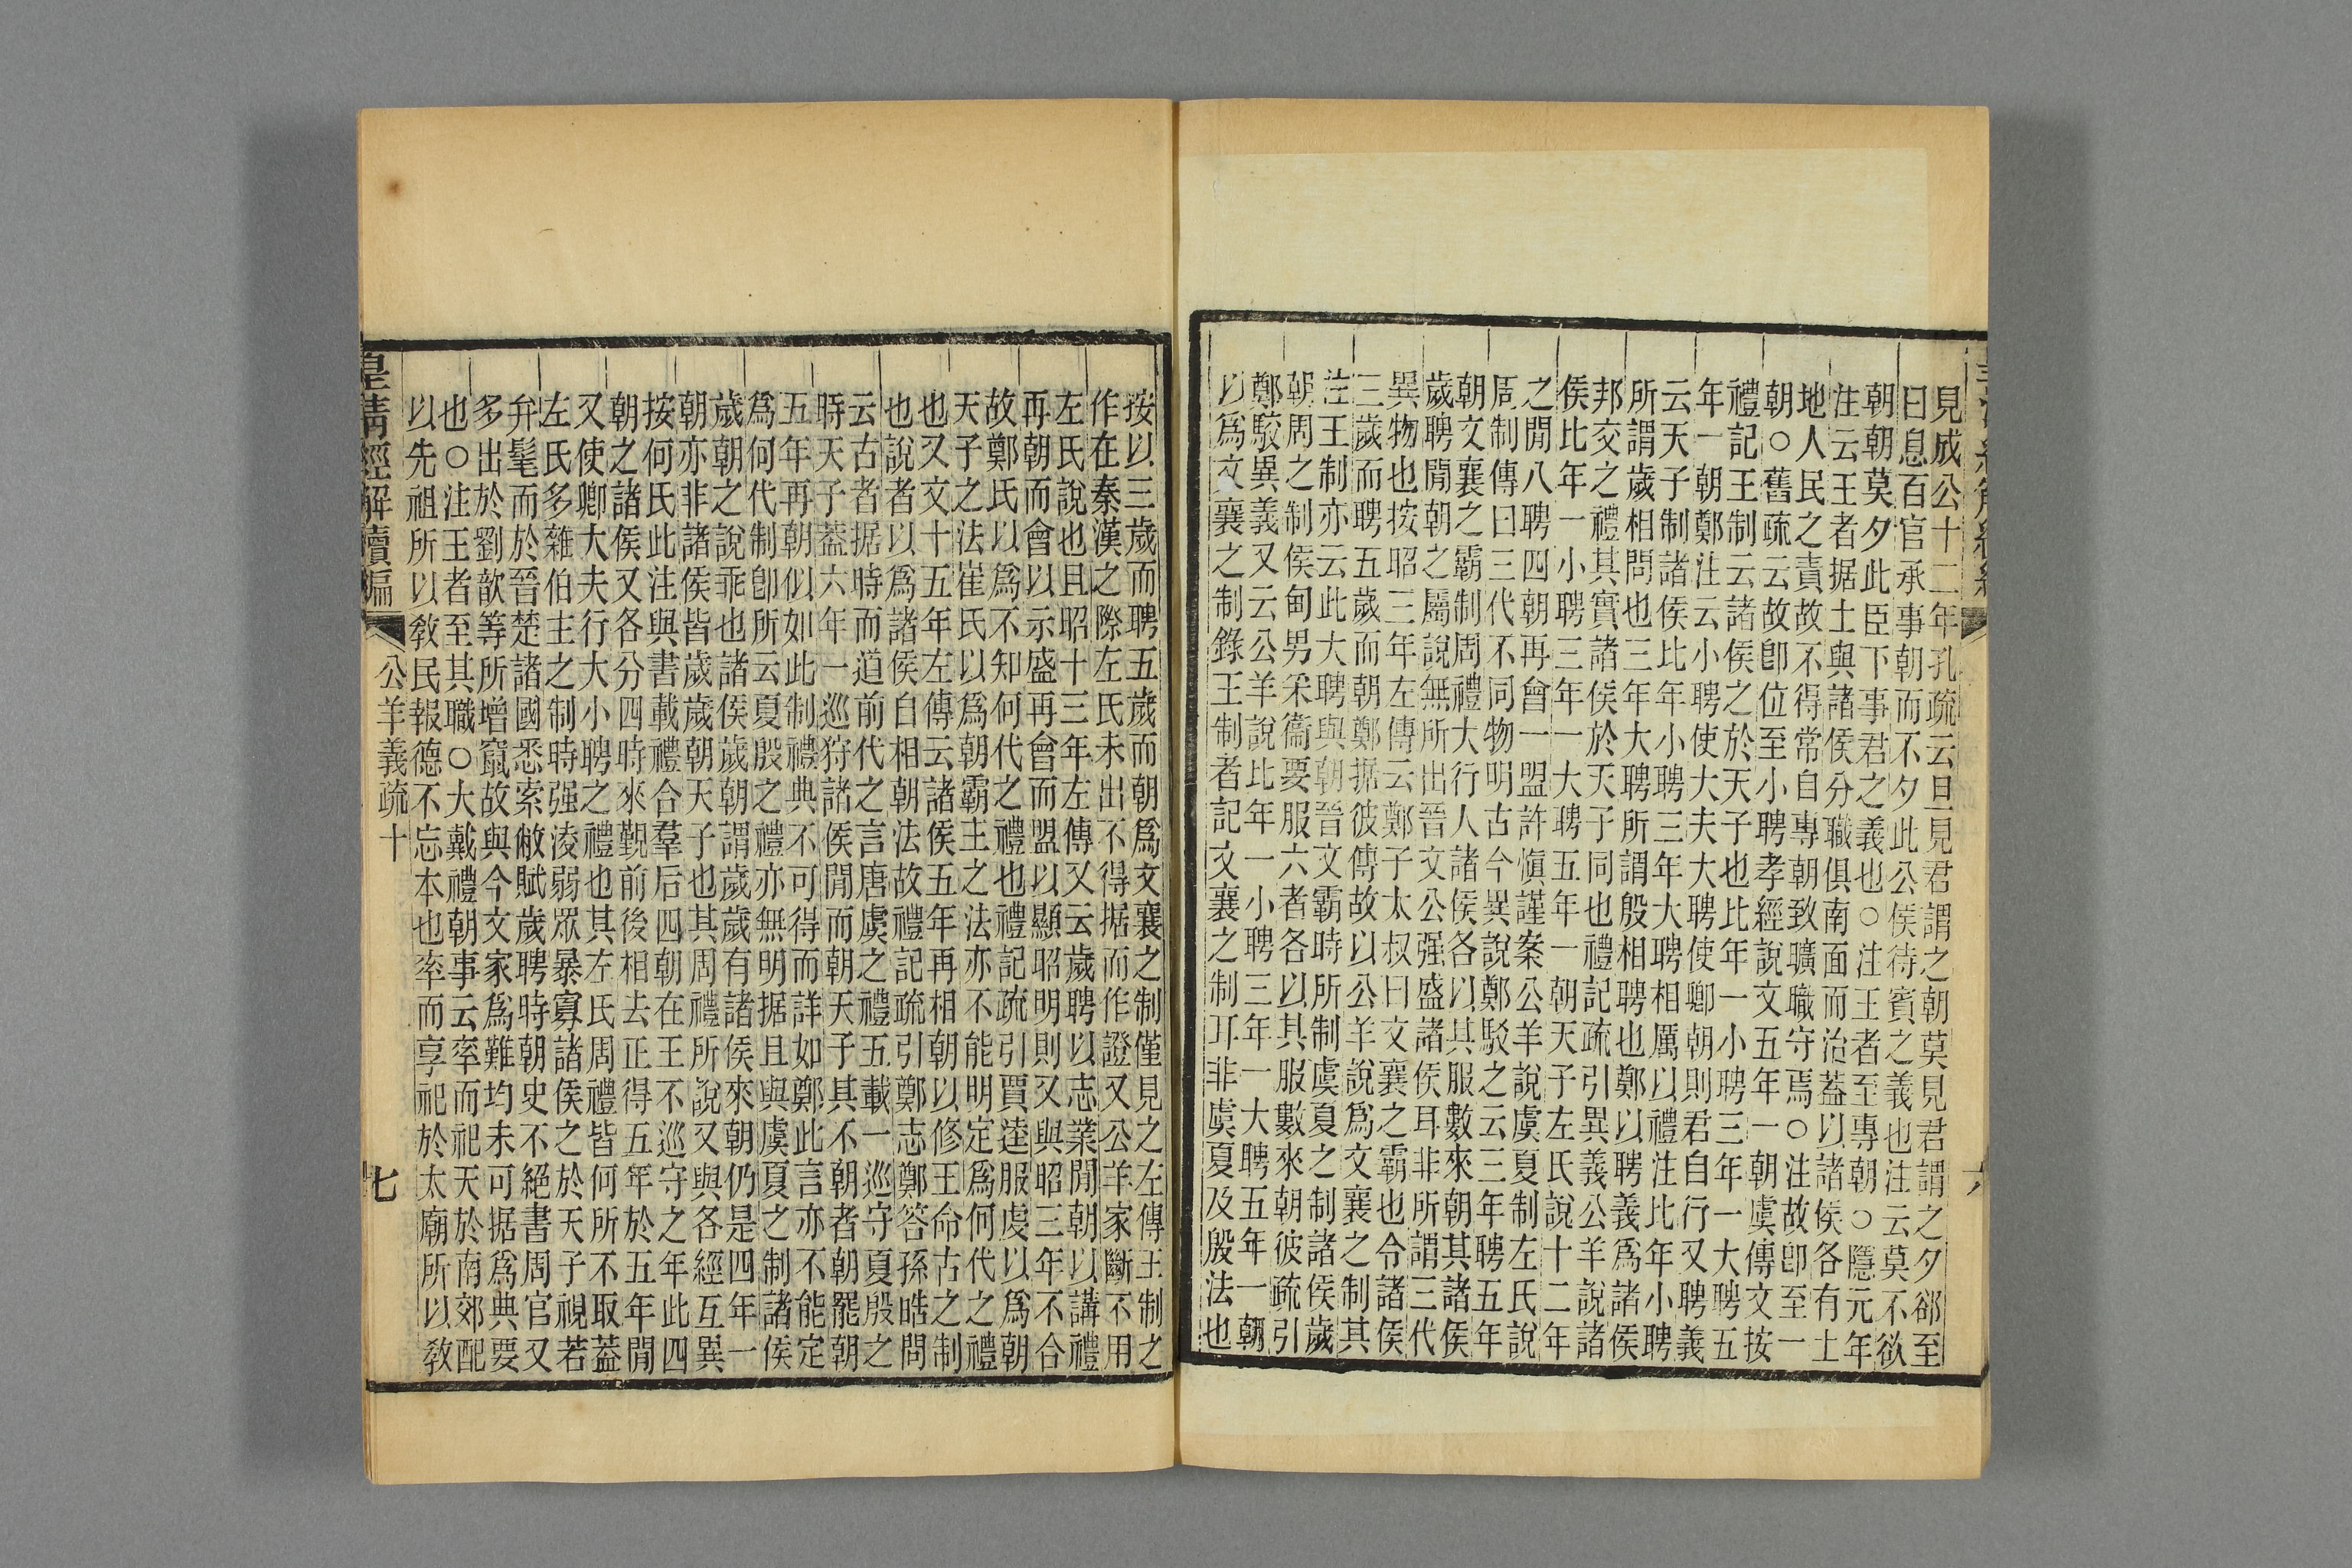 見成公十二年孔疏云旦見君謂之朝莫見君謂之夕郤至
曰息百官承事朝而不夕此公侯待賓之義也注云莫不欲
朝朝莫夕此臣下事君之義也○注王者至專朝○隱元年
注云王者据土與諸侯分職俱南面而治葢以諸侯各有土
地人民之責故不得常自專朝致曠職守焉○注故卽至一
朝○舊疏云故卽位至小聘孝經說文五年一朝虞傳文按
禮記王制云諸侯之於天子也比年一小聘三年一大聘五
年一朝鄭注云小聘使大夫大聘使卿朝則君自行又聘義
云天子制諸侯比年小聘三年大聘相厲以禮注比年小聘
所謂歲相問也三年大聘所謂殷相聘也鄭以聘義爲諸侯
邦交之禮其實諸侯於天子同也禮記疏引異義公羊說諸
侯比年一小聘三年一大聘五年一朝天子左氏說十二年
之閒八聘四朝再會一盟許愼謹案公羊說虞夏制左氏說
周制傳曰三代不同物明古今異說鄭駁之云三年聘五年
朝文襄之霸制周禮大行人諸侯各以其服數來朝其諸侯
歲聘閒朝之屬說無所出晉文公强盛諸侯耳非所謂三代
異物也按昭三年左傳云鄭子太叔曰文襄之霸也令諸侯
三歲而聘五歲而朝鄭据彼傳故以公羊說爲文襄之制其
注王制亦云此大聘與朝晉文霸時所制虞夏之制諸侯歲
朝周之制侯甸男采衞要服六者各以其服數來朝彼疏引
鄭駁異義又云公羊說比年一小聘三年一大聘五年一朝
以爲文襄之制錄王制者記文襄之制耳非虞夏及殷法也
按以三歲而聘五歲而朝爲文襄之制僅見之左傳王制之
作在秦漢之際左氏未出不得据而作證又公羊家斷不用
左氏說也且昭十三年左傳又云歲聘以志業閒朝以講禮
再朝而會以示盛再會而盟以顯昭明則又與昭三年不合
故鄭氏以爲不知何代之禮也禮記疏引賈逵服虔以爲朝
天子之法崔氏以爲朝霸主之法亦不能明定爲何代之禮
也又文十五年左傳云諸侯五年再相朝以修王命古之制
也說者以爲諸侯自相朝法故禮記疏引鄭志鄭答孫皓問
云古者据時而道前代之言唐虞之禮五載一巡守夏殷之
時天子葢六年一巡狩諸侯閒而朝天子其不朝者朝罷朝
五年再朝似如此制禮典不可得而詳如鄭此言亦不能定
爲何代制卽所云夏殷之禮亦無明据且與虞夏之制諸侯
歲朝之說乖也諸侯歲朝謂歲歲有諸侯來朝仍是四年一
朝亦非諸侯皆歲歲朝天子也其周禮所說又與各經互異
按何氏此注與書載禮合羣后四朝在王不巡守之年此四
朝之諸侯又各分四時來覲前後相去正得五年於五年閒
又使卿大夫行大小聘之禮也其左氏周禮皆何所不取葢
左氏多雜伯主之制時强淩弱眾暴寡諸侯之於天子視若
弁髦而於晉楚諸國悉索敝賦歲聘時朝史不絕書周官又
多出於劉歆等所增竄故與今文家爲難均未可据爲典要
也○注王者至其職○大戴禮朝事云率而祀天於南郊配
以先祖所以敎民報德不忘本也率而享祀於太廟所以敎
皇清經解續編 公羊義疏十 七